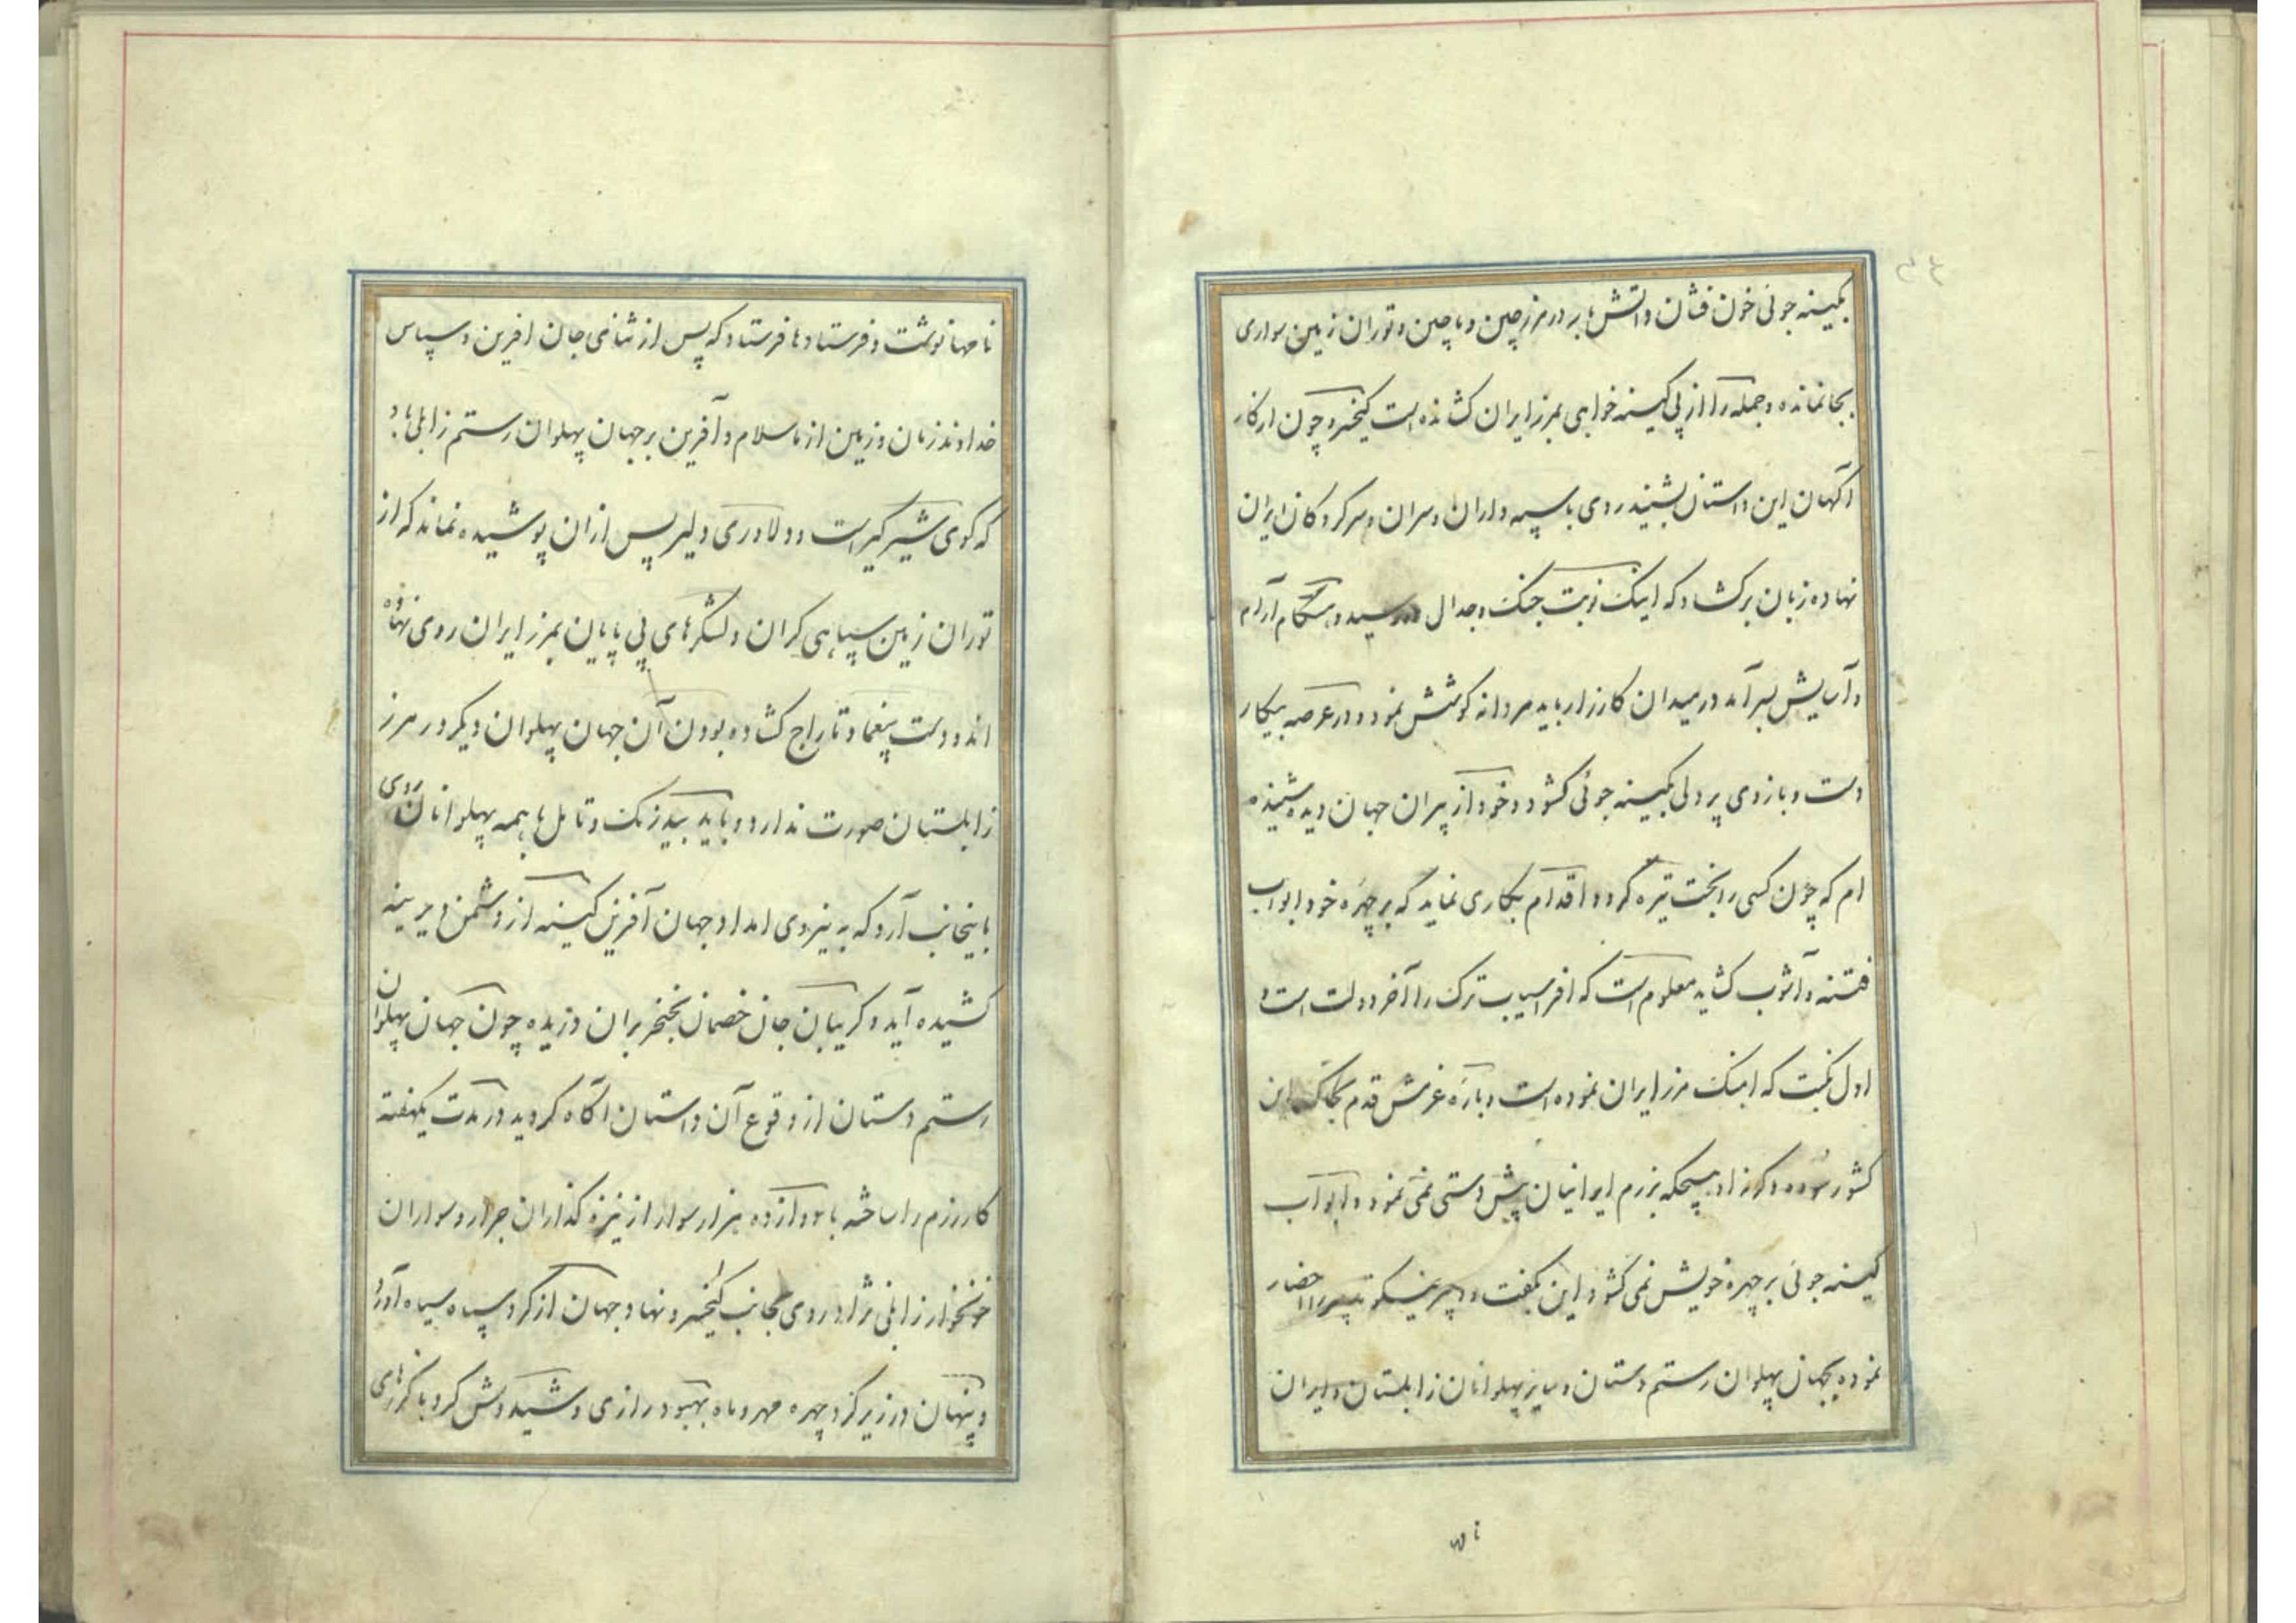 بکینه جوئی خون فشان و آتش بار در مرز چین و ماچین و توران زمین سواری
بجا نمانده و جمله را از پی کینه خواهی بمرز ایران کشانده است کیخسرو چون از کار
آگهان این داستان بشنید روی با سپه داران و سران و سرکردکان ایران
نهاده زبان برکشاد که اینک نوبت جنک و جدال در رسید و هنگام آرام
و آسایش بسر آمد در میدان کارزار باید مردانه کوشش نمود و در عرصه پیکار
دست و بازوی پر دلی بکینه جوئی کشود و خود از پیران جهان دیده شنیده
ام که چون کسی را بخت تیره کردد اقدام بکاری نماید که بر چهره خود ابواب
فتنه و آشوب کشاید معلوم است که افراسیاب ترک را آخر دولت است و
اول نکبت که اهنک مرز ایران نموده است و باره عزمش قدم بخاک این
کشور سوده و کرنه او هیچکه بزرم ایرانیان پیش دستی نمی نمود و ابواب
کینه جوئی بر چهره خویش نمی کشود این بکفت و دبیر نیکو تدبیر را احضار
نموده بجهان پهلوان رستم دستان و سایر پهلوانان زابلستان و ایران
نا
نامها نوشت و فرستادها فرستاد که پس از ثنای جان آفرین و سپاس
خداوند زمان و زمین از ما سلام و آفرین بر جهان پهلوان رستم زابلی باد
که کوی شیر کیر است و دلاوری دلیر پس ازان پوشیده نماند که از
توران زمین سپاهی کران و لشکرهای بی پایان بمرز ایران روی نهاده
اند و دست بیغما و تاراج کشاده بودن آن جهان پهلوان دیکر در مرز
زابلستان صورت ندارد و باید بیدرنک و تامل با همه پهلوانان روی
باینجانب آرد که به نیروی امداد جهان آفرین کینه از دشمن دیرینه
کشیده آید و کریبان جان خصمان بخنجر بران دریده چون جهان پهلوان
رستم دستان از وقوع آن داستان آکاه کردید در مدت یکهفته
کار رزم را ساخته با دوازده هزار سوار از نیزه کذاران جرار و سواران
خونخوار زابلی نژاد روی بجانب کیخسرو نهاد جهان از کرد سپاه سیاه آورد
و پنهان در زیر کرد چهره مهر و ماه بهبود رازی و شیدوش کرد با کرزهای